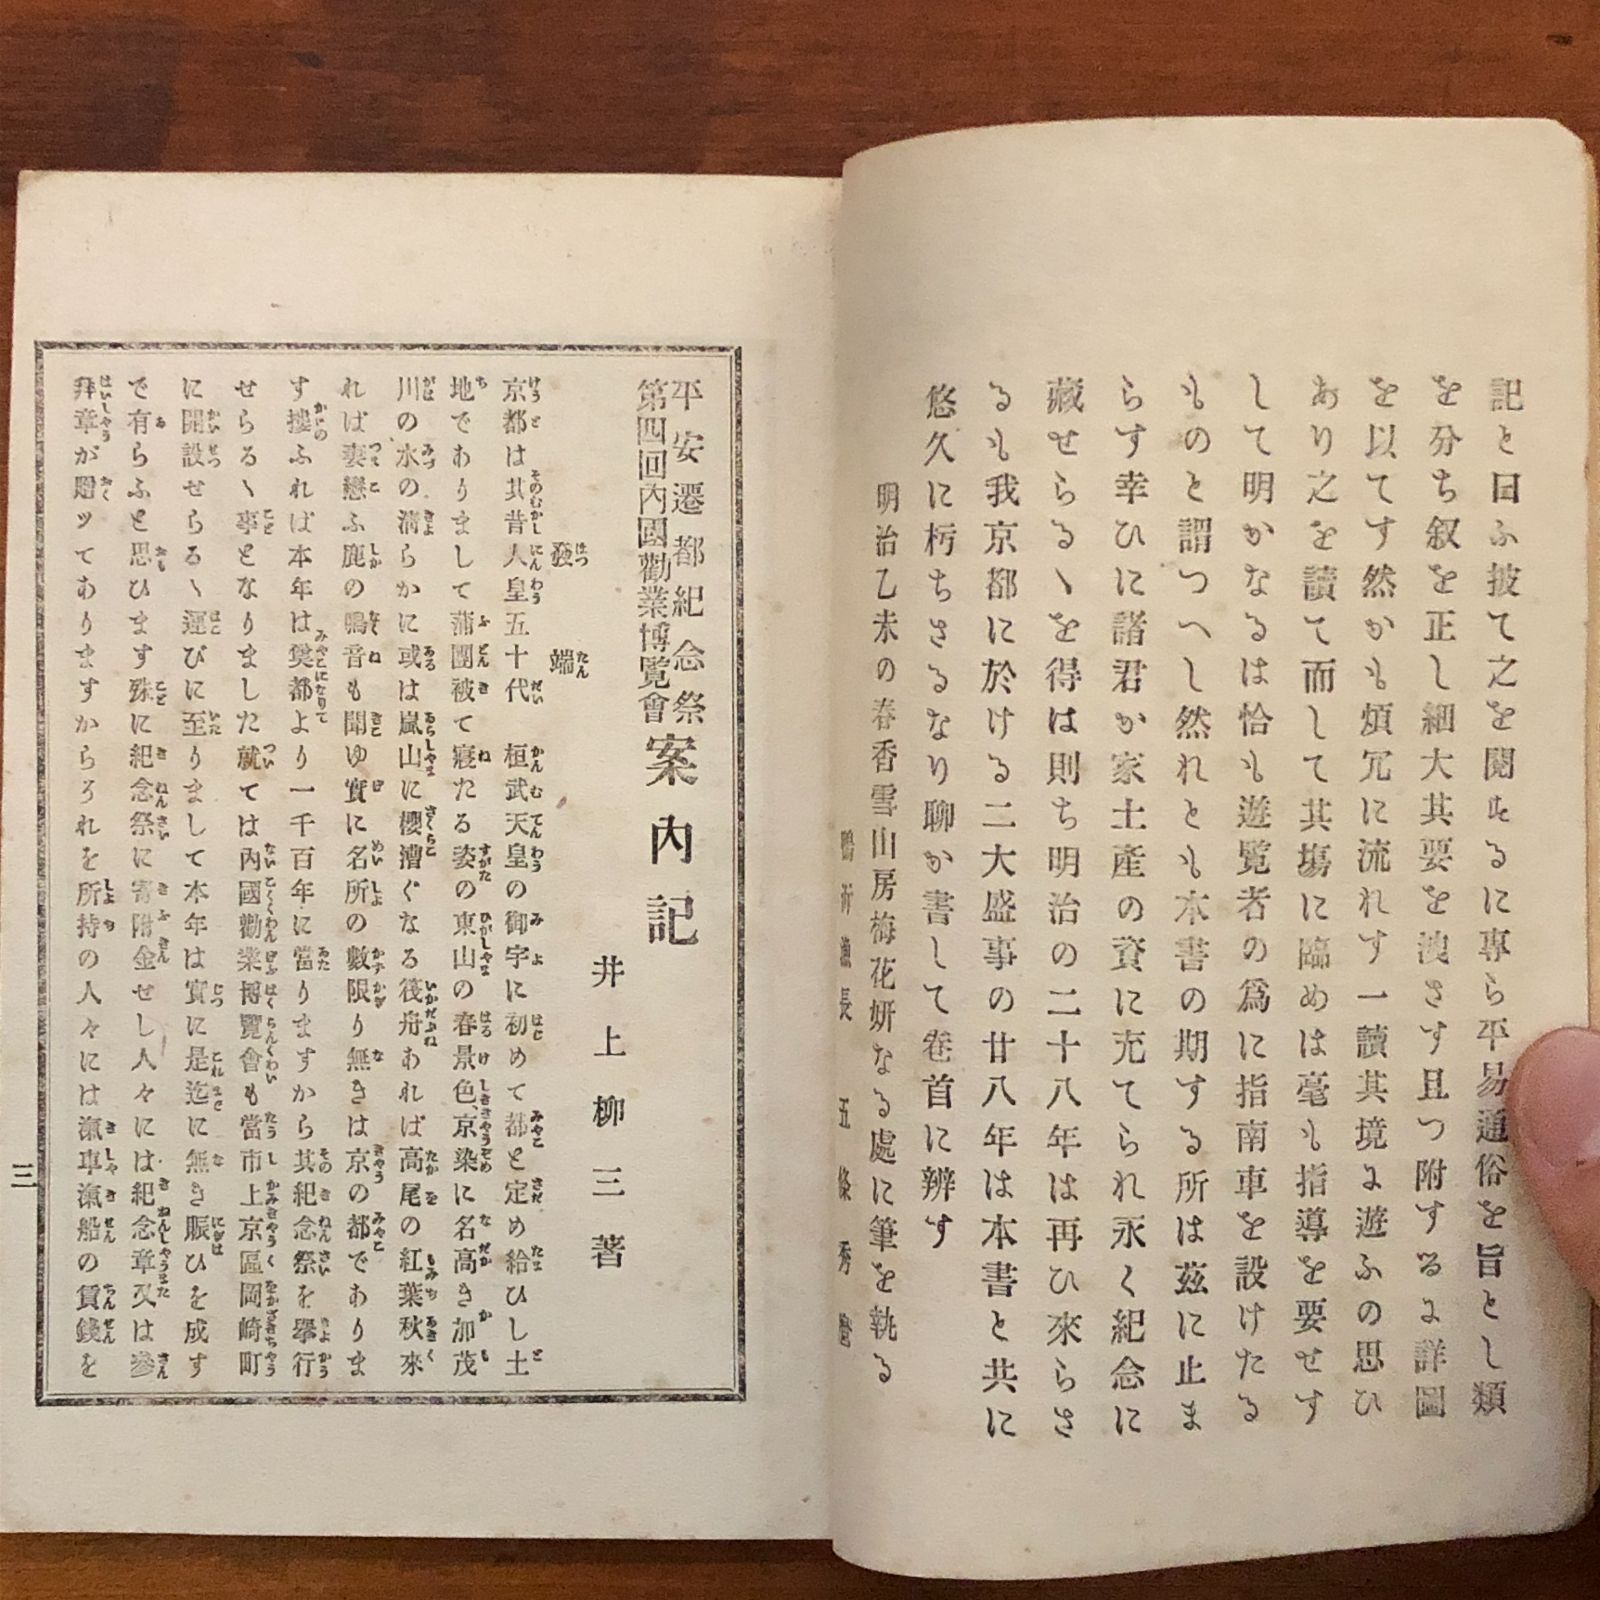 記と曰ふ披て之を閲するに專ら平易通俗を旨とし類
を分ち叙を正し細大其要を洩さす且つ附するに詳圖
を以てす然かも煩冗に流れす一讀其境に遊ふの思ひ
あり之を讀て而して其塲に臨めは毫も指導を要せす
して明かなるは恰も遊覧者の爲に指南車を設けたる
ものと謂つへし然れとも本書の期する所は茲に止ま
らす幸ひに諸君か家土産の資に充てられ永く紀念に
藏せらるゝを得は則ち明治の二十八年は再ひ來らさ
るも我京都に於ける二大盛事の廿八年は本書と共に
悠久に朽ちさるなり聊か書して卷首に辨す
明治乙未の春香雪山房梅花妍なる處に筆を執る
鴨沂漁長 五條秀麿
平安遷都紀念祭
第四回內國勸業博覧會
案內記
井上柳三著
發端
京都は其昔人皇五十代 桓武天皇の御宇に初めて都と定め給ひし土
地でありまして蒲團被て寢たる姿の東山の春景色、京染に名高き加茂
川の水の淸らかに或は嵐山に櫻漕ぐなる筏舟あれば高尾の紅葉秋來
れば妻戀ふ鹿の鳴音も聞ゆ實に名所の數限り無きは京の都でありま
す摟ふれば本年は奠都より一千百年に當りますから其紀念祭を擧行
せらるゝ事となりました就ては內國勸業博覽會も當市上京區岡崎町
に開設せらるゝ運びに至りまして本年は實に是迄に無き賑ひを成す
で有らふと思ひます殊に紀念祭に寄附金せし人々には紀念章又は參
拜章が贈ッてありますからろれを所持の人々には滊車滊船の賃錢を
三